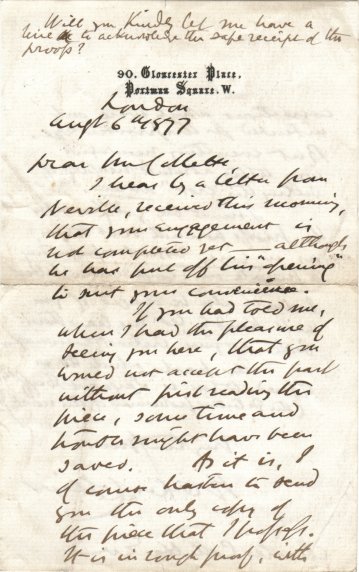 Will you kindly let me have a
line to acknowledge the safe receipt of the
proofs?
90, Gloucester Place,
Portman Square. W.
London
Augt 6th 1877
Dear Mr Collette
I hear by a letter from
Neville, received this morning,
that your engagement is
not completed yet — although
he has put off his "opening"
to suit your convenience.
If you had told me,
when I had the pleasure of
seeing you here, that you
would not accept the part
without first reading the
piece, some time and
trouble might have been
saved. As it is, I
of course hasten to send
you the only copy of
the piece that I possess.
It is in rough proof, with